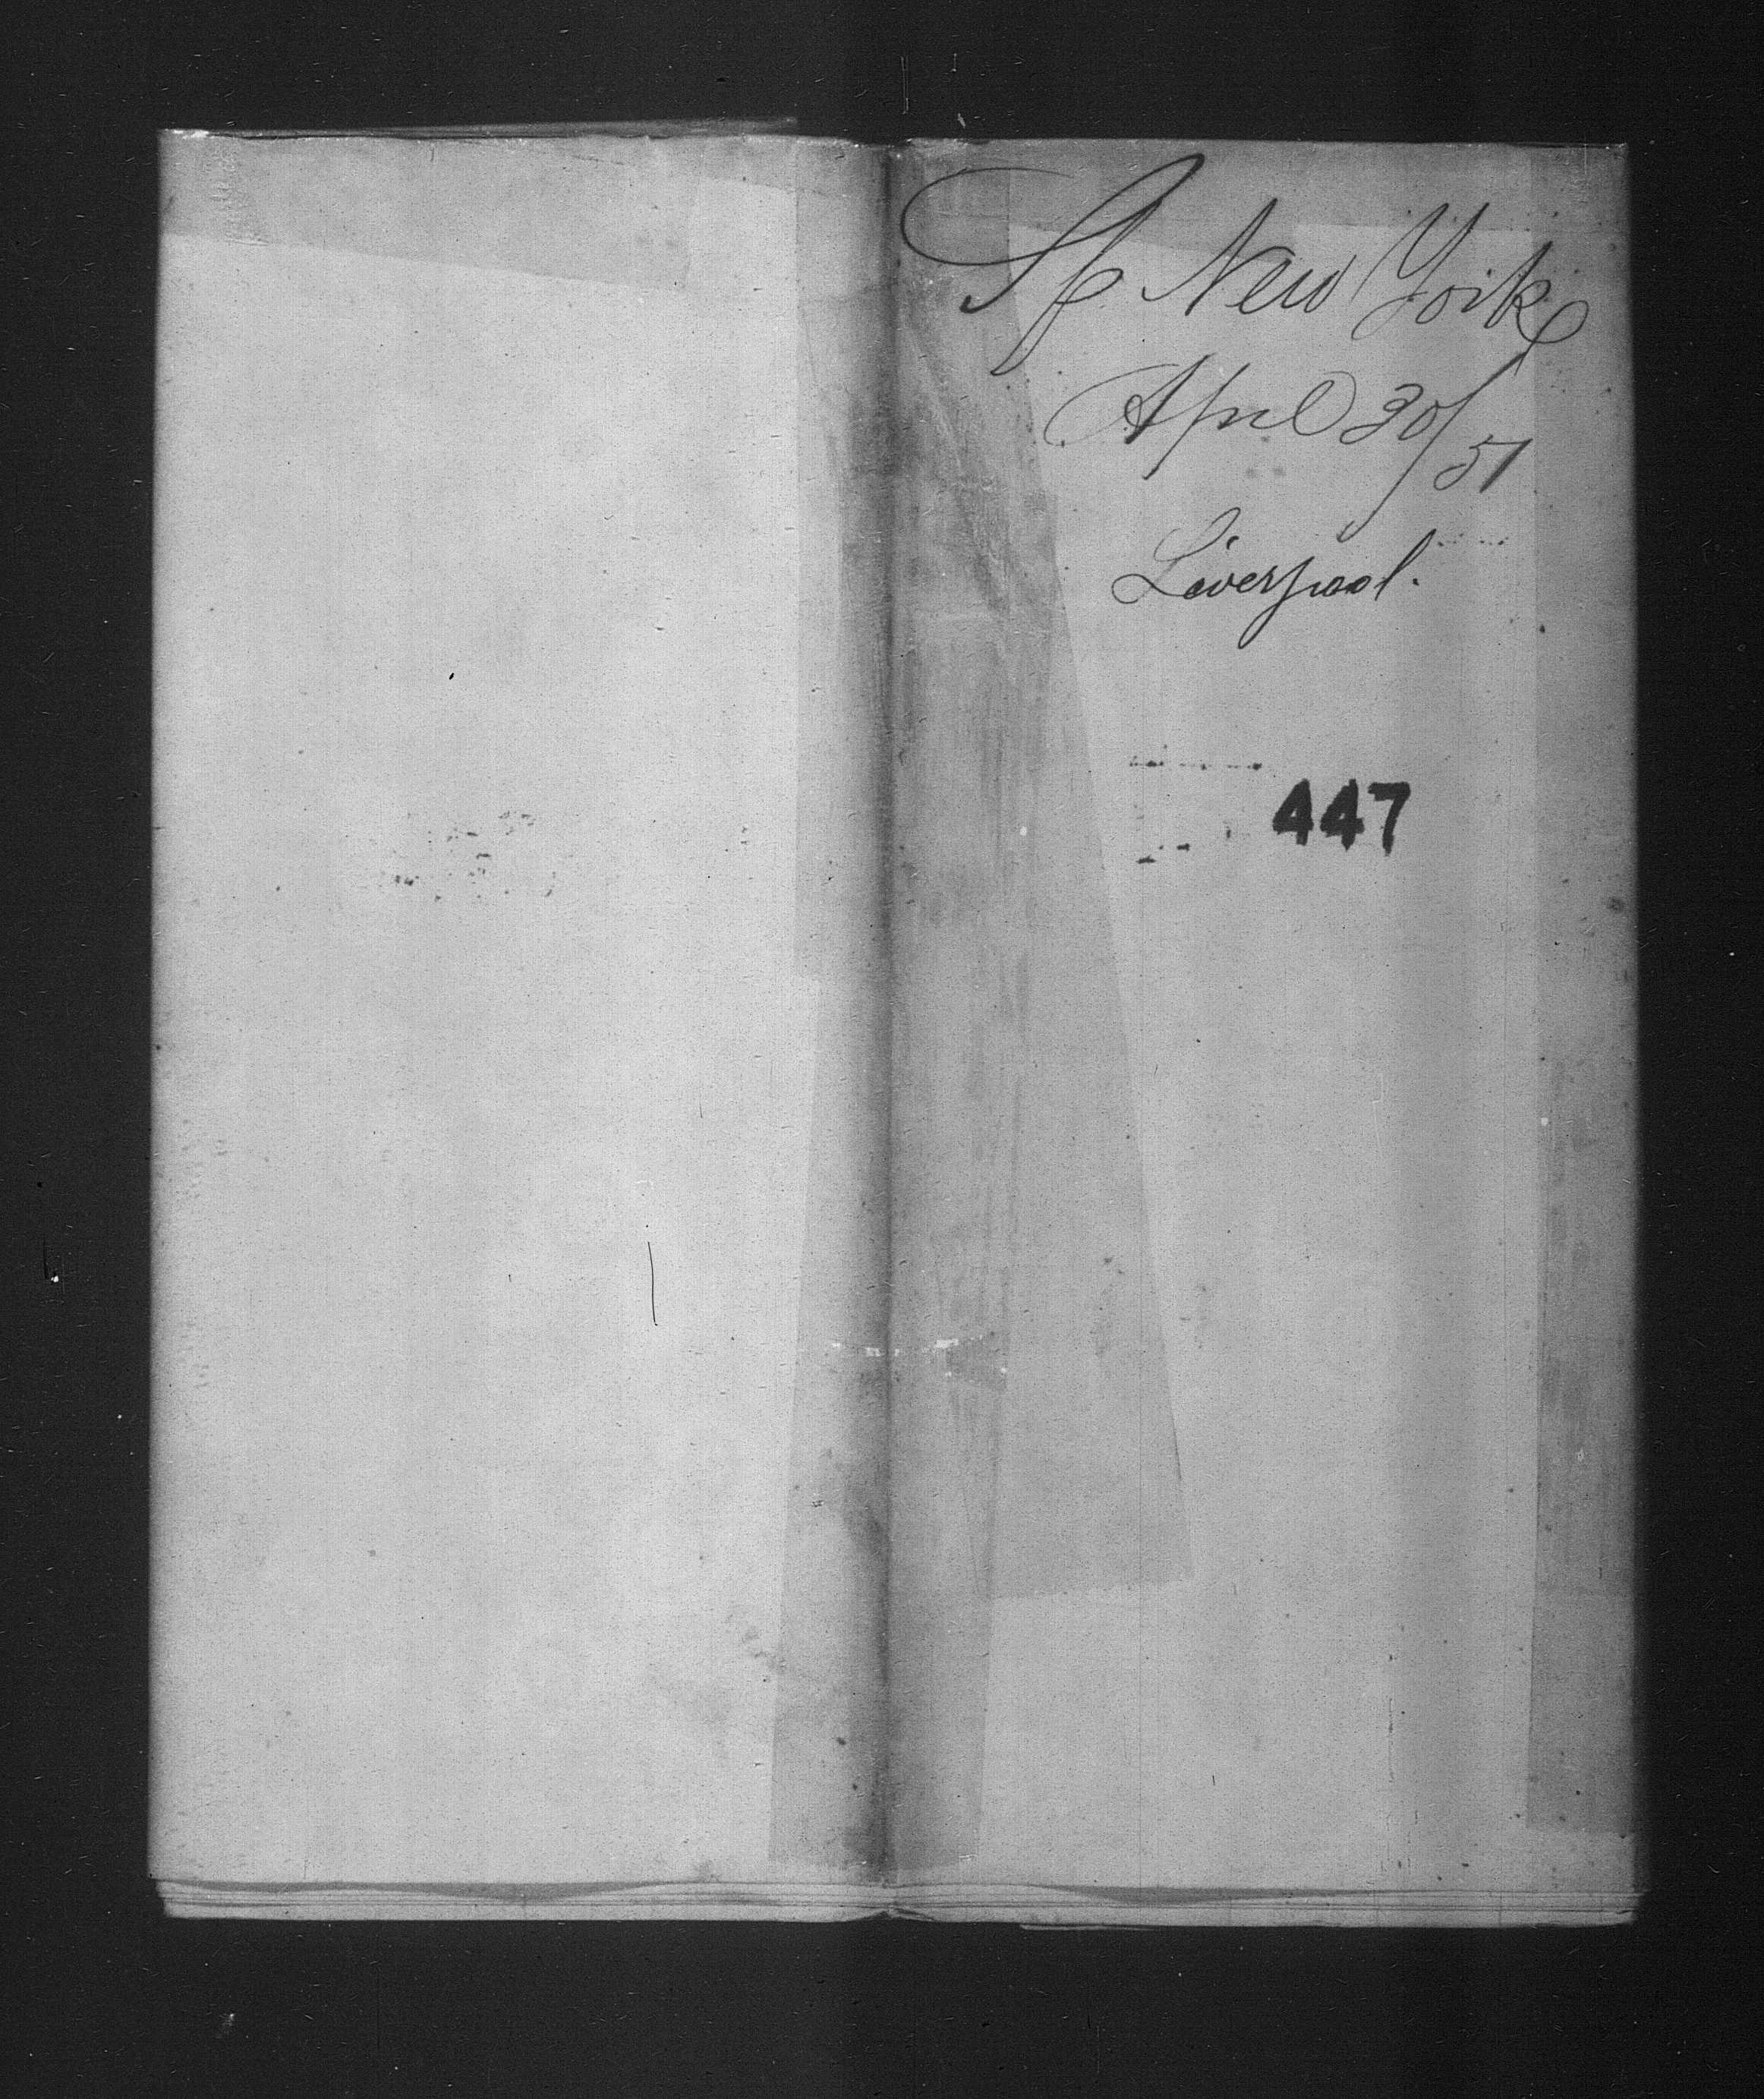 Sp New York
April 30/51
Liverpool.
447